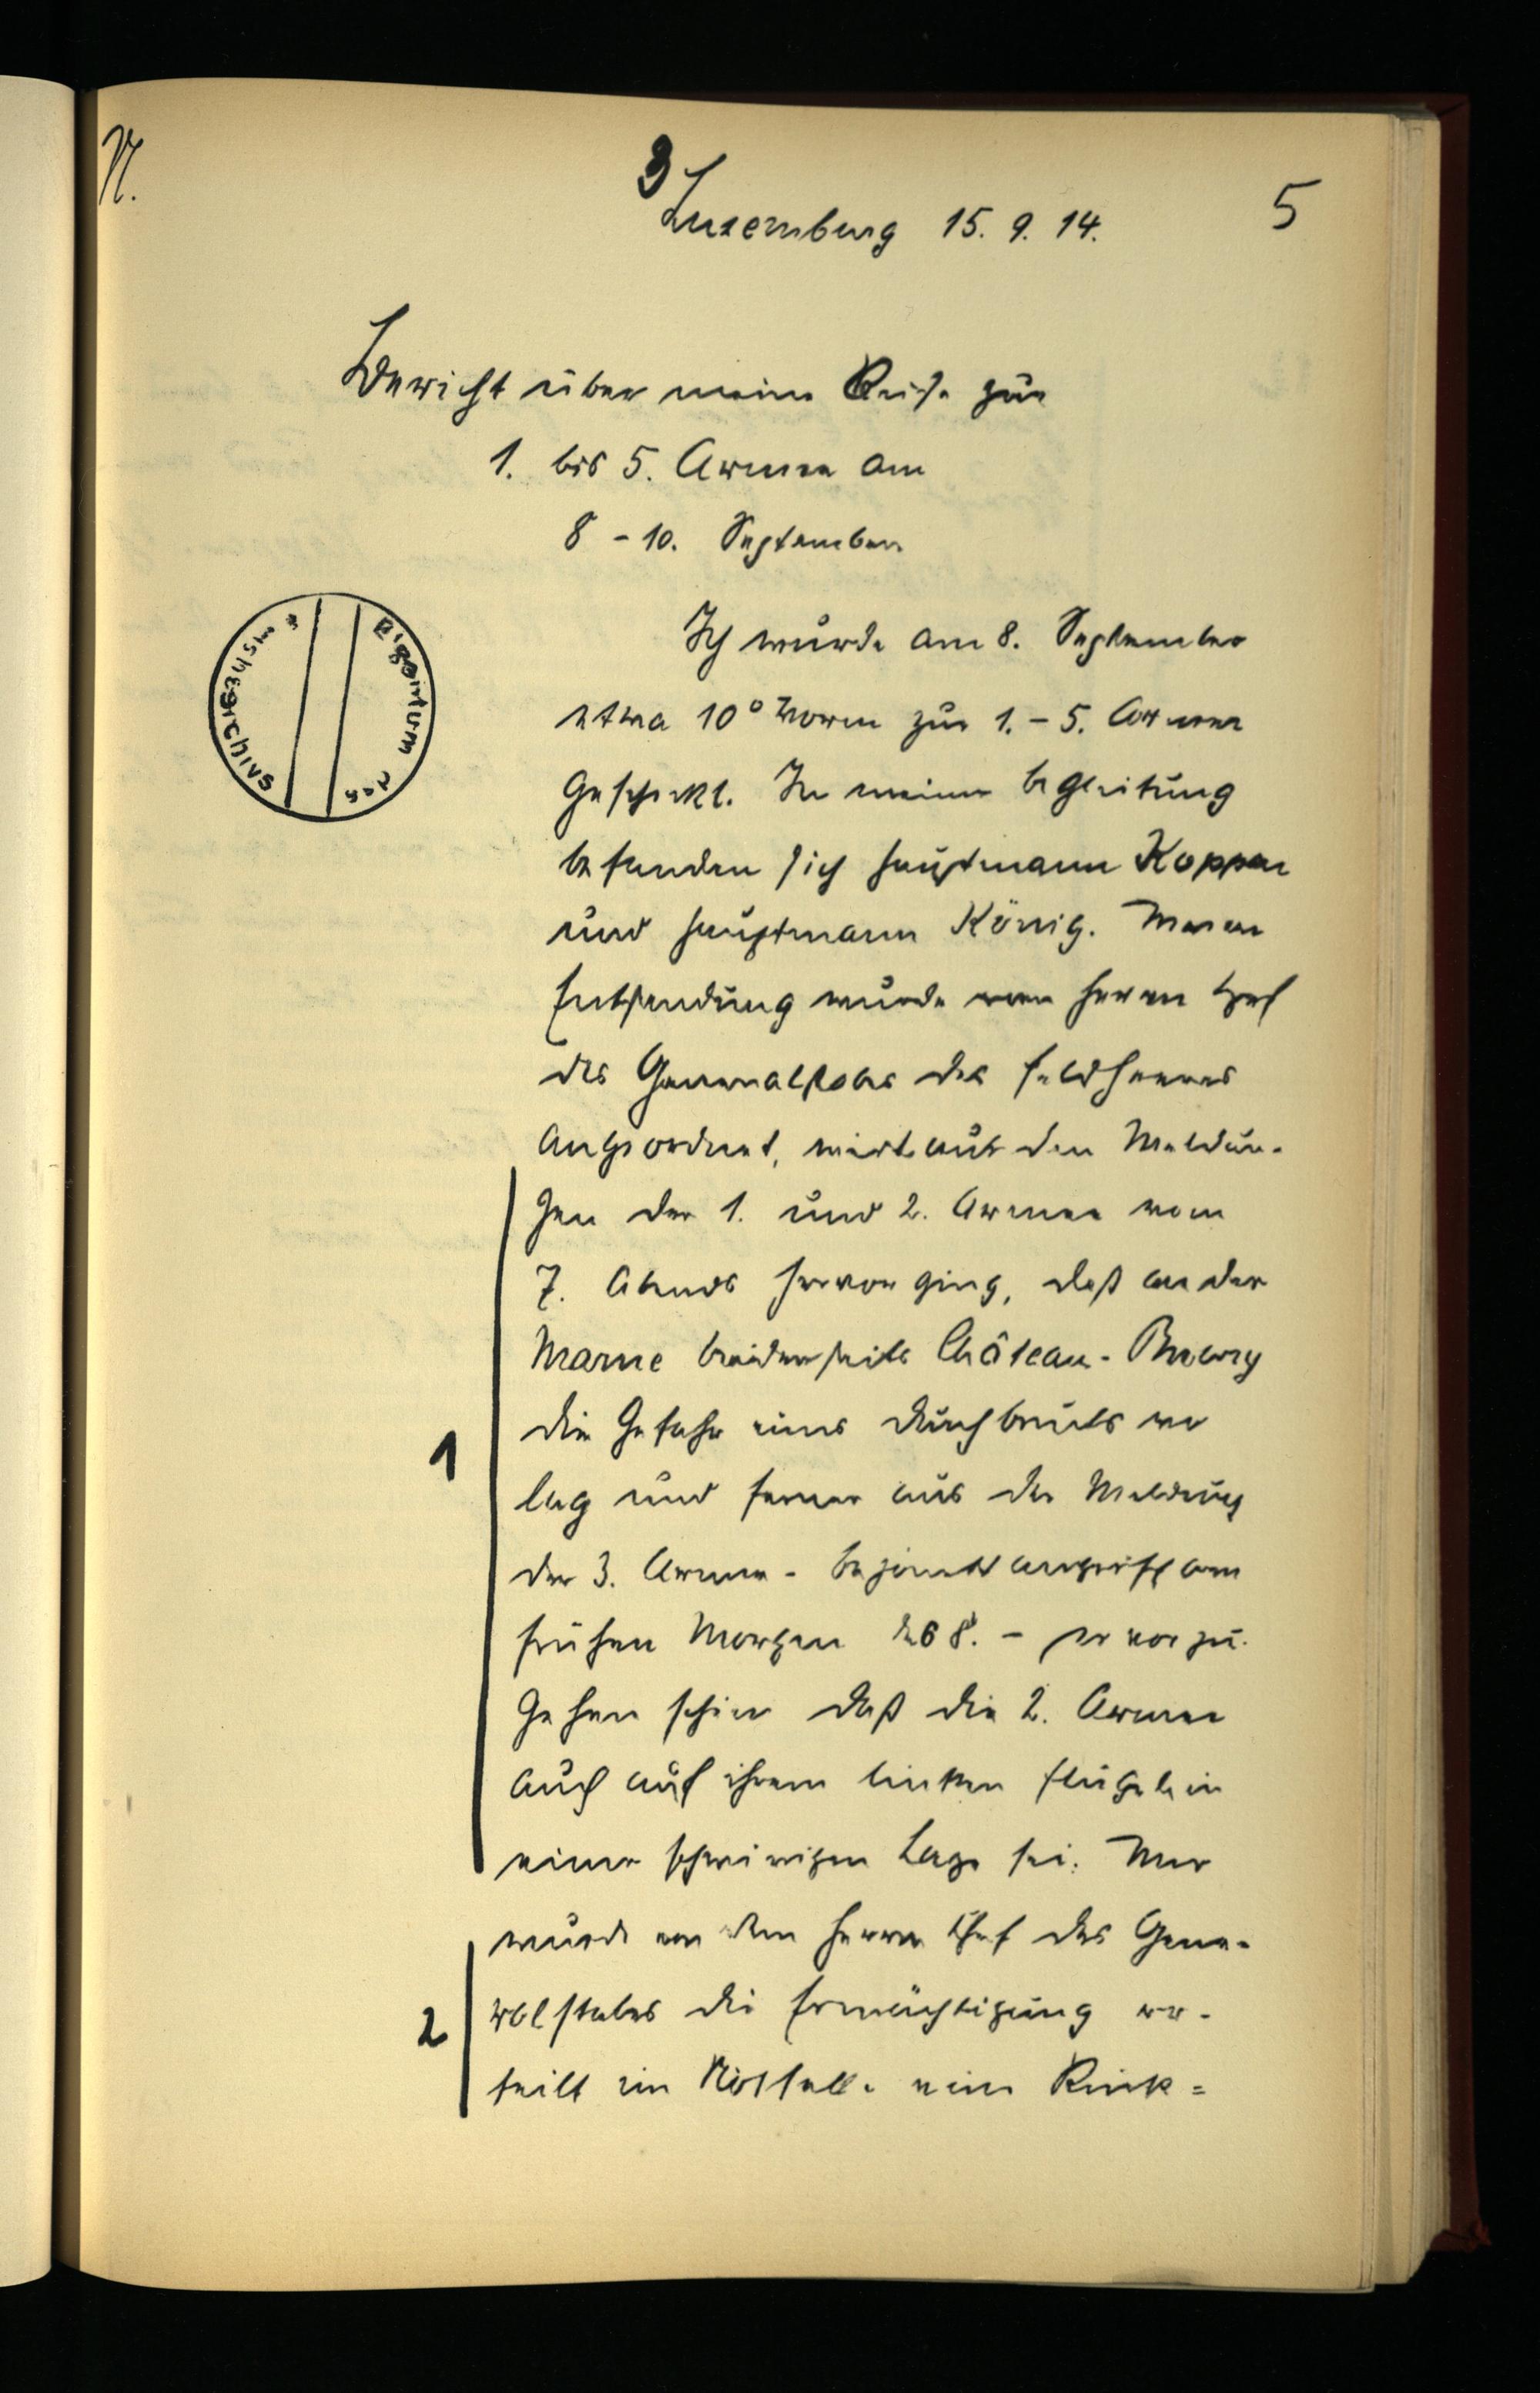 N.
3
5
Luxemburg 15. 9. 14.
Bericht über meine Reise zur
1. bis 5. Armee am
8 - 10. September
Eigentum des
Reichsarchivs
Ich wurde am 8. September
etwa 10° Vorm zur 1. - 5. Armee
geschickt. In meiner Begleitung
befanden sich Hauptmann Koppen
und Hauptmann König. Meine
Entsendung wurde vom Herrn Chef
des Generalstabes des Feldheeres
angeordnet, weil aus den Meldun-
gen der 1. und 2. Armee vom
7. Abends hervor ging, daß an der
Marne beiderseits Château-Thierry
die Gefahr eines Durchbruchs vor
lag und ferner aus der Meldung
der 3. Armee - Bajonettangriff am
frühen Morgen des 8. - hervorzu-
gehen schien daß die 2. Armee
auch auf ihrem linken Flügel in
einer schwierigen Lage sei. Mir
wurde von dem Herrn Chef des Gene-
ralstabes die Ermächtigung er-
teilt im Notfalle eine Rück=
1
2